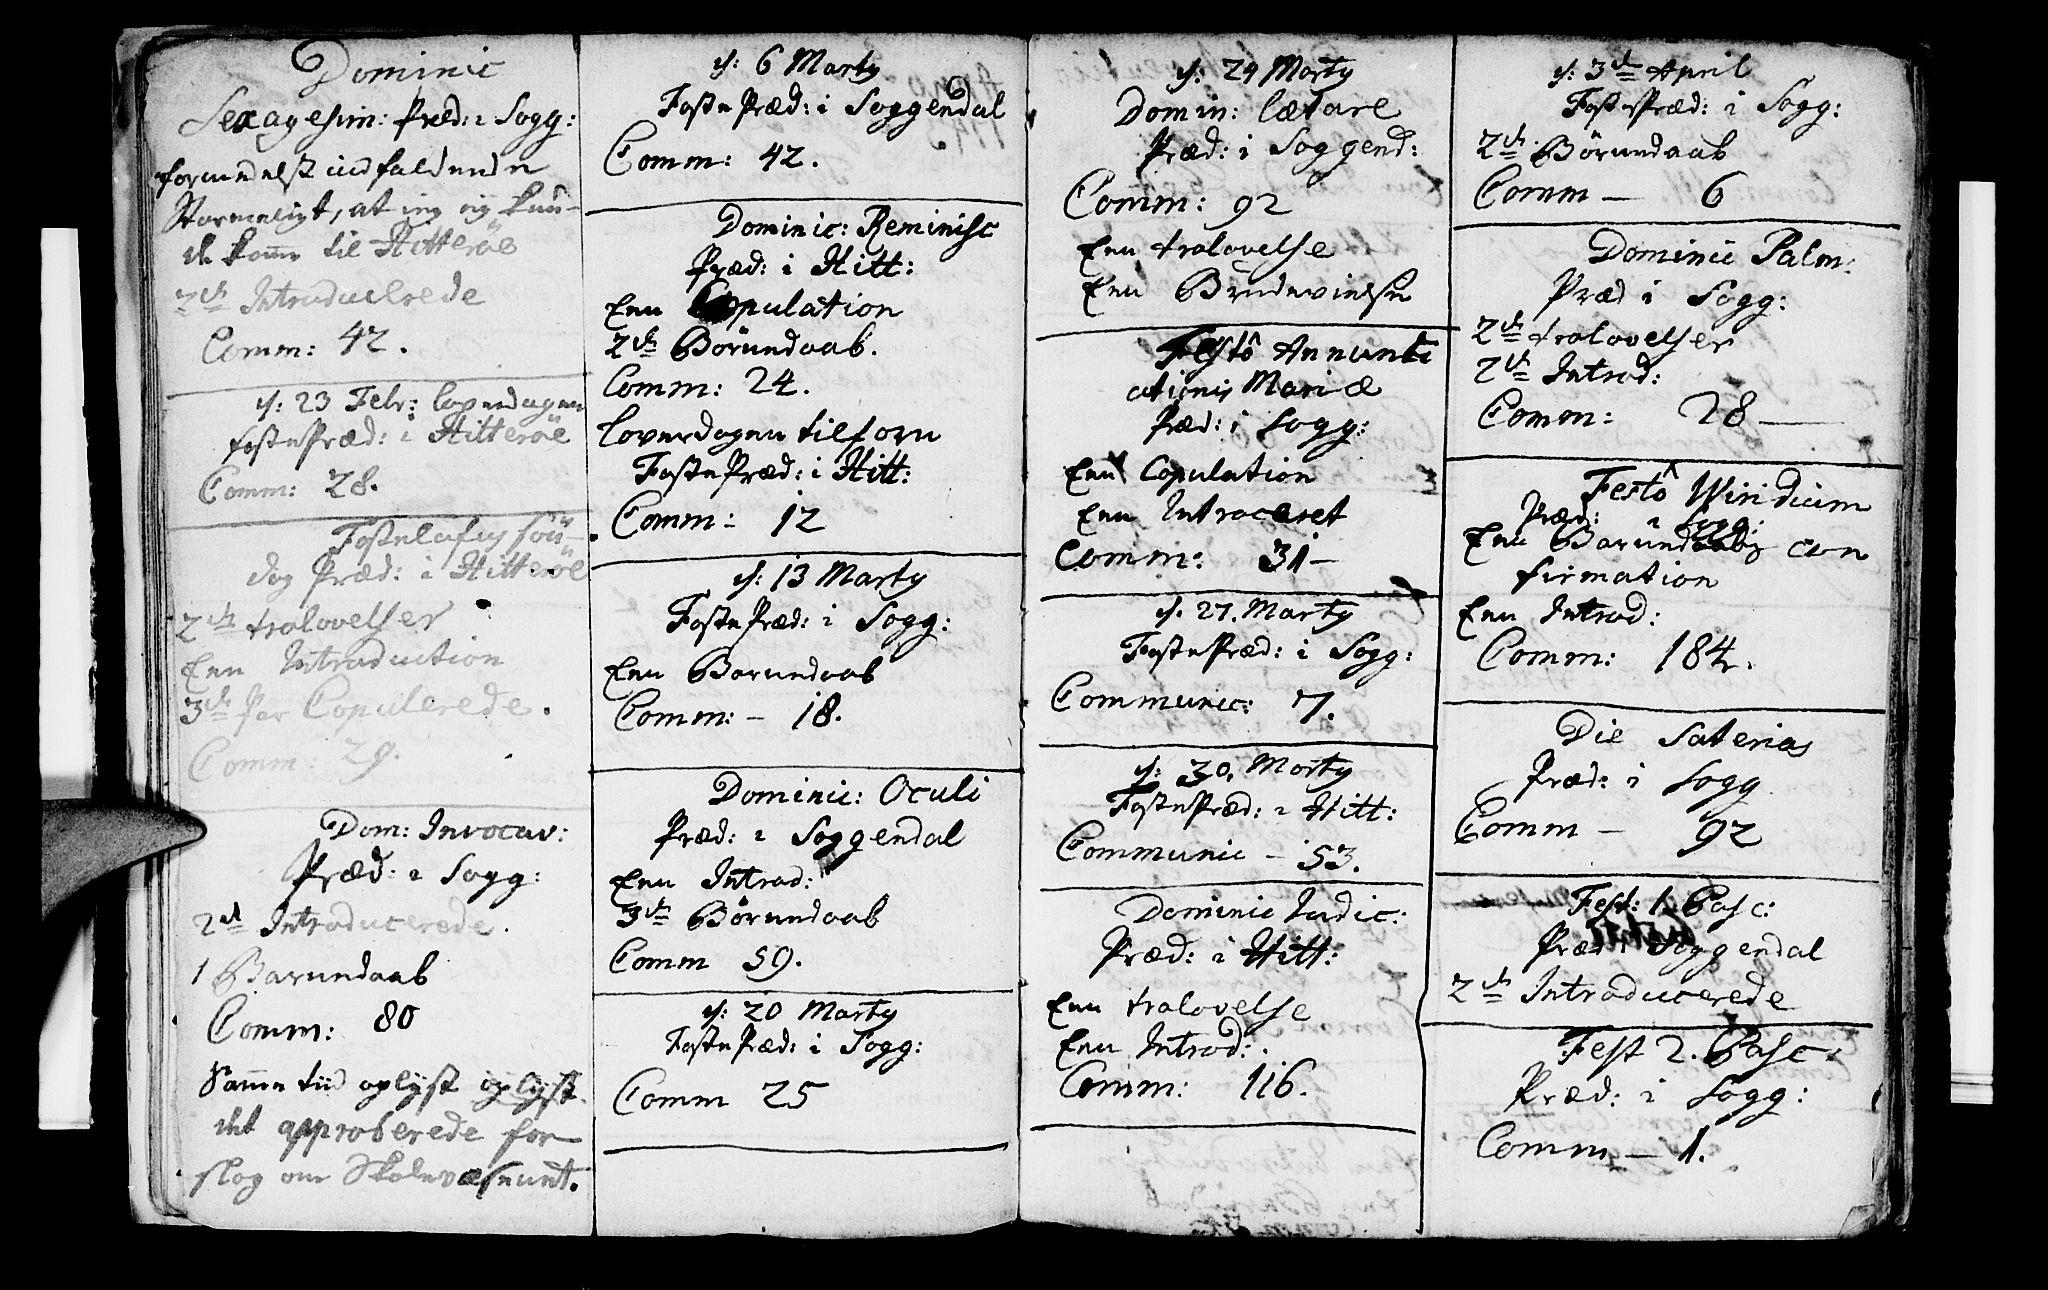 Dominic
Sexagesim: Præd: i Sogg:
formedelst indfaldende
Stormeligt, at jeg ej kun-
de kom̄e til Hitterøe
2de Introducerede
Comm: 42.
d: 23 Febr: Løverdagen
fastePræd: i Hitterøe
Comm: 28.
Fastelafns søn-
dag Præd: i Hitterøe
2de trolovelser
Een Introduction
3de par Copulerede.
Comm: 29.
Dom: Invocav:
Præd: i Sogg:
2de Introducerede.
1 Barundaab
Comm: 80
Sam̄e tiid oplyst oplyst
det approberede for-
slag om Skolevæsenet.
d: 6 Marty
FastePræd: i Soggendal
Comm: 42.
Dominic: Reminisc
Præd: i Hitt:
Een Copulation
2de Börundaab.
Comm: 24.
Loverdagen tilforn
FastePræd: i Hitt:
Comm: 12
d: 13 Marty
FastePræd: i Sogg:
Een Barundaab
Comm: – 18.
Dominic: Oculi
Præd: i Soggendal
Een Introd:
3de Börundaab
Comm 59.
d: 20 Marty
FastePræd: i Sogg:
Comm 25
d: 24 Marty
Domin: lætare
Præd: i Soggend:
Comm: 92
Een trolovelse
Een Brudevielse
Festô Annunti
ationis Mariæ
Præd: i Sogg:
Een Copulation
Een Introceret
Comm: 31–
d: 27. Marty
FastePræd: i Sogg:
Communic: 7.
d: 30. Marty
FastePræd: i Hitt:
Communic – 53.
Dominic Judic:
Præd: i Hitt:
Een trolovelse
Een Introd:
Comm: 116.
d: 3de April
FastePræd: i Sogg:
2de Börundaab
Comm – 6
Dominic Palm:
Præd i Sogg:
2de trolovelser
2de Introd:
Comm: 28 –
Festô Wiridium
Præd: i Sogg:
Een Barundaabs con
firmation
Een Introd:
Comm: 184.
Die Saterias
Præd: i Sogg
Comm – 92
Fest: 1 Pasc:
Præd: i Soggendal
2de Introducerede
Fest 2. Pasc:
Præd: i Sogg:
Comm – 1.